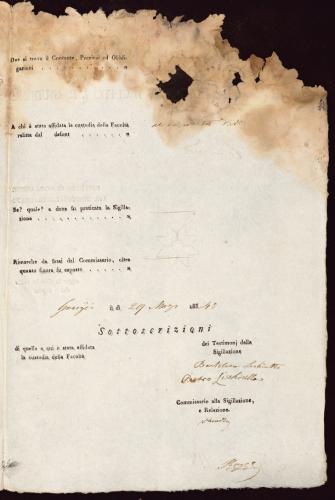 Ove si trova il Contante, Preziosi ed Obbli-
gazioni . . . . . . . . . . . . . "
A chi è stata affidata la custodia della Facoltà
relitta dal defunt . . . . . . . . . "
Se? quale? e dove fu praticata la Sigilla-
zione . . . . . . . . . . . . . . "
Rimarche da farsi del Commissario, oltre
quanto finora fu esposto . . . . . . "
li di 29 Marzo 1843
Sottoscrizioni
di quello a cui è stata affidata
la custodia della Facoltà
dei Testimonj della
Sigillazione
Pietro
Commissario alla Sigillazione,
e Relazione.